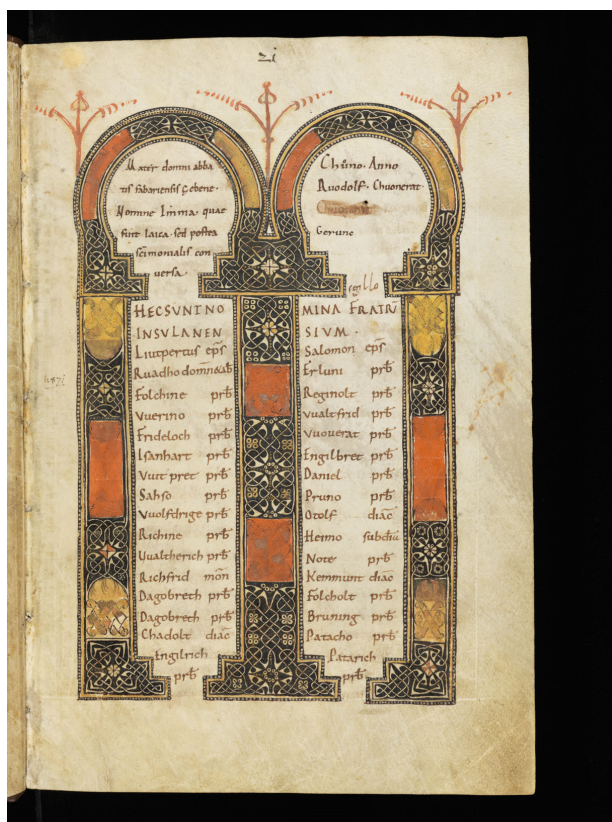 zi
Mater domni abba
tis fabariensis gebene.
Nomine Imma. quae
fuit laica. sed postea
scimonialis con
versa.
Chůno. Anno
Ruodolf. Chuonrat.
Gerune
HEC SUNT NO
INSULANEN
Liutpertus eps
Ruadho domneab
Folchine prb
Vuerino prb
Frideloch prb
Isanhart prb
Vuit pret prb
Sahso prb
Vuolfdrige prb
Richine prb
Uualtherich prb
Richfrid mon
Dagobreth prb
Dagobreth prb
Chadolt diac
Engilrich
prb
MINA FRATRŨ
SIUM.
Salomon eps
Erluni prb
Reginolt prb
Vualtfrid prb
Vuouerat prb
Engilbret prb
Daniel prb
Pruno prb
Otolf diac
Heimo subdiac
Note prb
Kemmunt diac
Folcholt prb
Bruning prb
Patacho prb
Patarich
prb